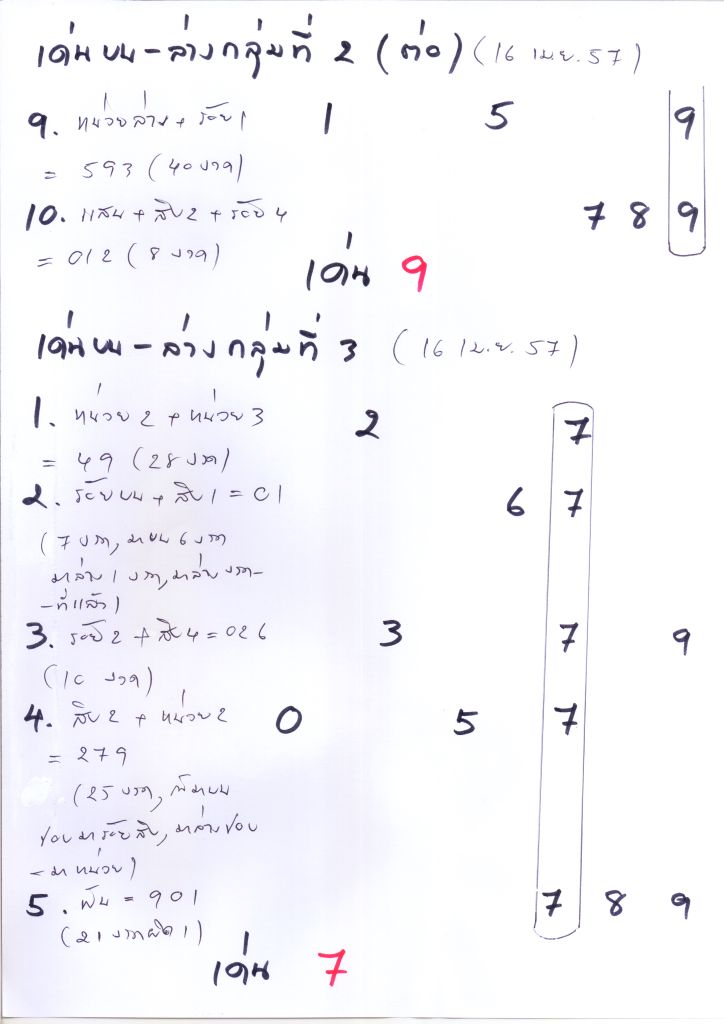 เด่นบน-ล่างกลุ่มที่ 2 (ต่อ) (16 เม.ย. 57)
9. หน่วยล่าง + ร้อย 1 1 5 9
= 593 (40 งวด)
10. แสน + สิบ 2 + ร้อย 4 7 8 9
= 012 (8 งวด)
เด่น 9
เด่นบน-ล่างกลุ่มที่ 3 (16 เม.ย. 57)
1. หน่วย 2 + หน่วย 3 2 7
= 49 (28 งวด)
2. ร้อยบน + สิบ 1 = 01 6 7
(7 งวด, มาบน 6 งวด
มาล่าง 1 งวด, มาล่างงวด-
-ที่แล้ว)
3. ร้อย 2 + สิบ 4 = 026 3 7 9
(10 งวด)
4. สิบ 2 + หน่วย 2 0 5 7
= 279
(25 งวด, มาบน
ชอบมาร้อยสิบ, มาล่างชอบ
-มาหน่วย)
5. พัน = 901 7 8 9
(21 งวดผิด 1)
เด่น 7